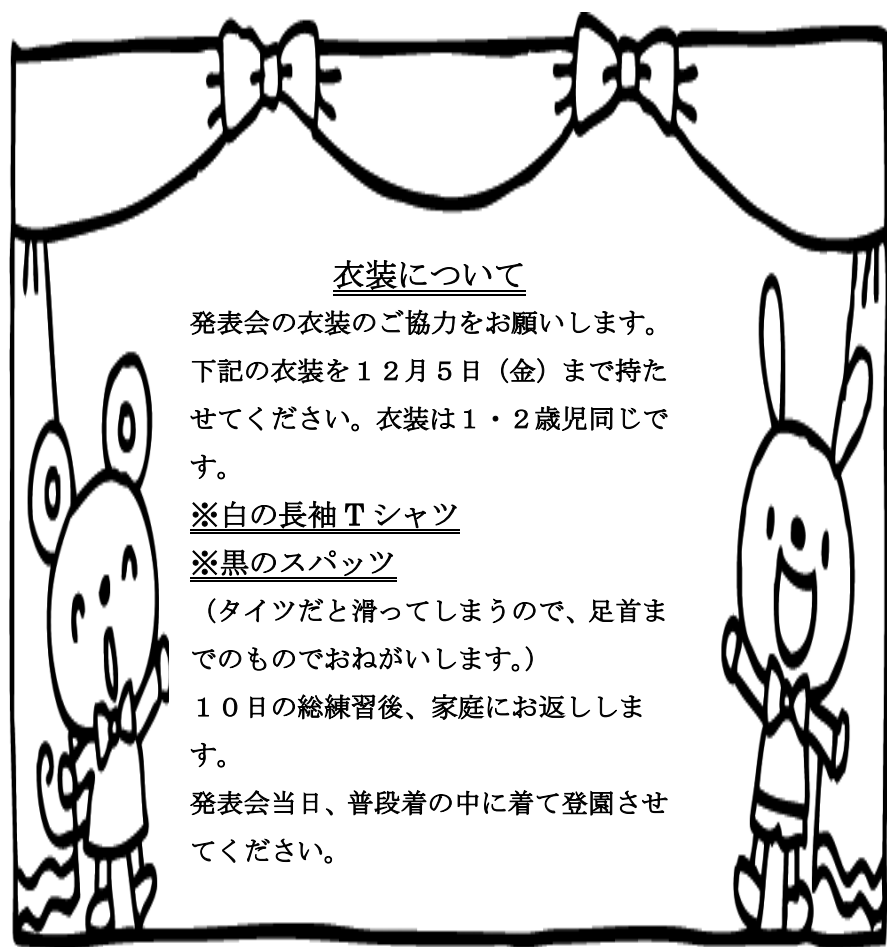 衣装について
発表会の衣装のご協力をお願いします。
下記の衣装を１２月５日（金）まで持た
せてください。衣装は１・２歳児同じで
す。
※白の長袖Tシャツ
※黒のスパッツ
（タイツだと滑ってしまうので、足首ま
でのものでおねがいします。）
１０日の総練習後、家庭にお返ししま
す。
発表会当日、普段着の中に着て登園させ
てください。